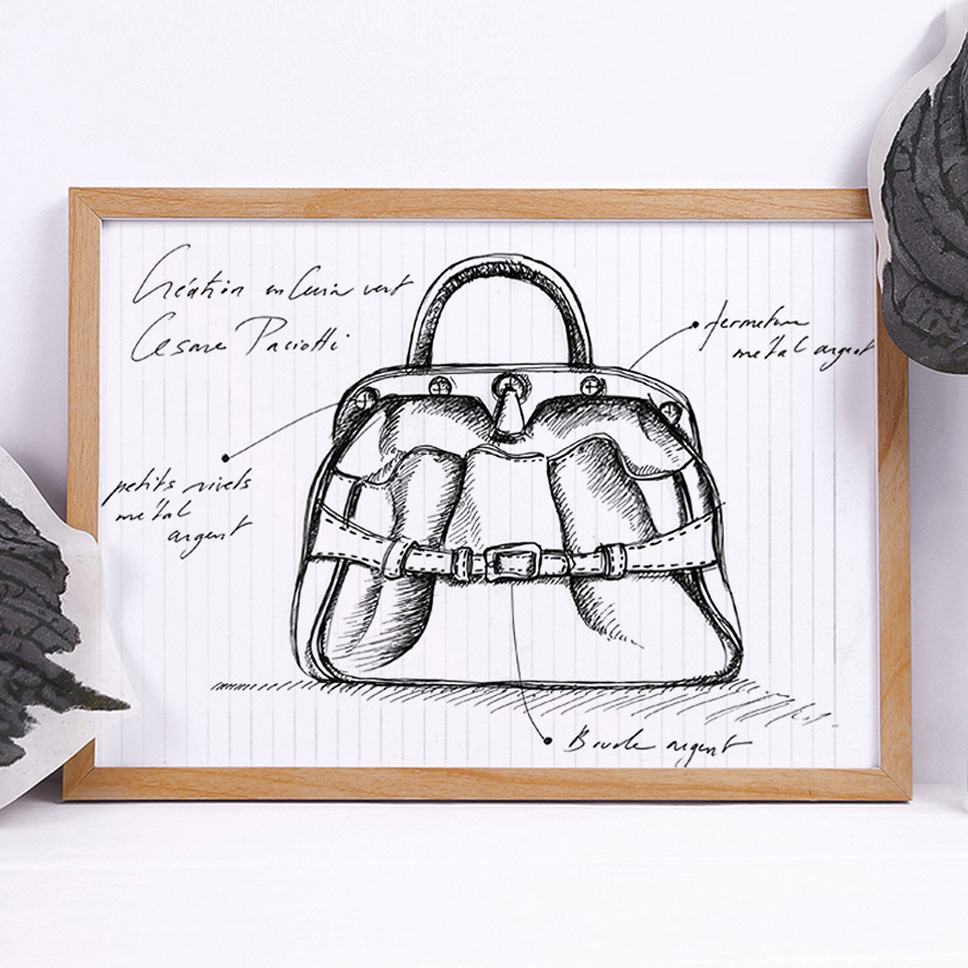 Création en Cuir vert
Cesare Paciotti
fermeture
métal argent
petits rivets
métal
argent
Boucle argent